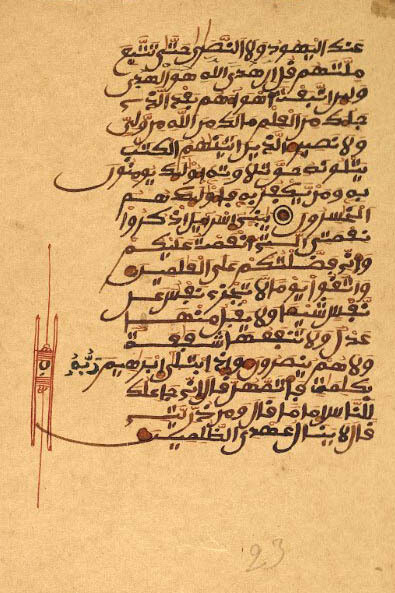 عنك اليهود ولا النصرى حتى تتبع
ملتهم قل ان هدى الله هو الهدى
ولين اتبعت اهواهم بعد الذى
جاك من العلم ما لك من الله من ولى
ولا نصير الذين اتينهم الكتب
يتلونه حق تلاوته اوليك يومنون
به ومن يكفر به فاوليك هم
الخسرون يبنى اسريل اذكروا
نعمتى التى انعمت عليكم
وانى فضلتكم على العلمين
واتقوا يوما لا تجزى نفس عن
نفس شيا ولا يقبل منها
عدل ولا تنفعها شفعة
ولا هم ينصرون واذ ابتلى ابرهيم ربه
بكلمت فاتمهن قال انى جاعلك
للناس اماما قال ومن ذريتى
قال لا ينال عهدى الظلمين
23